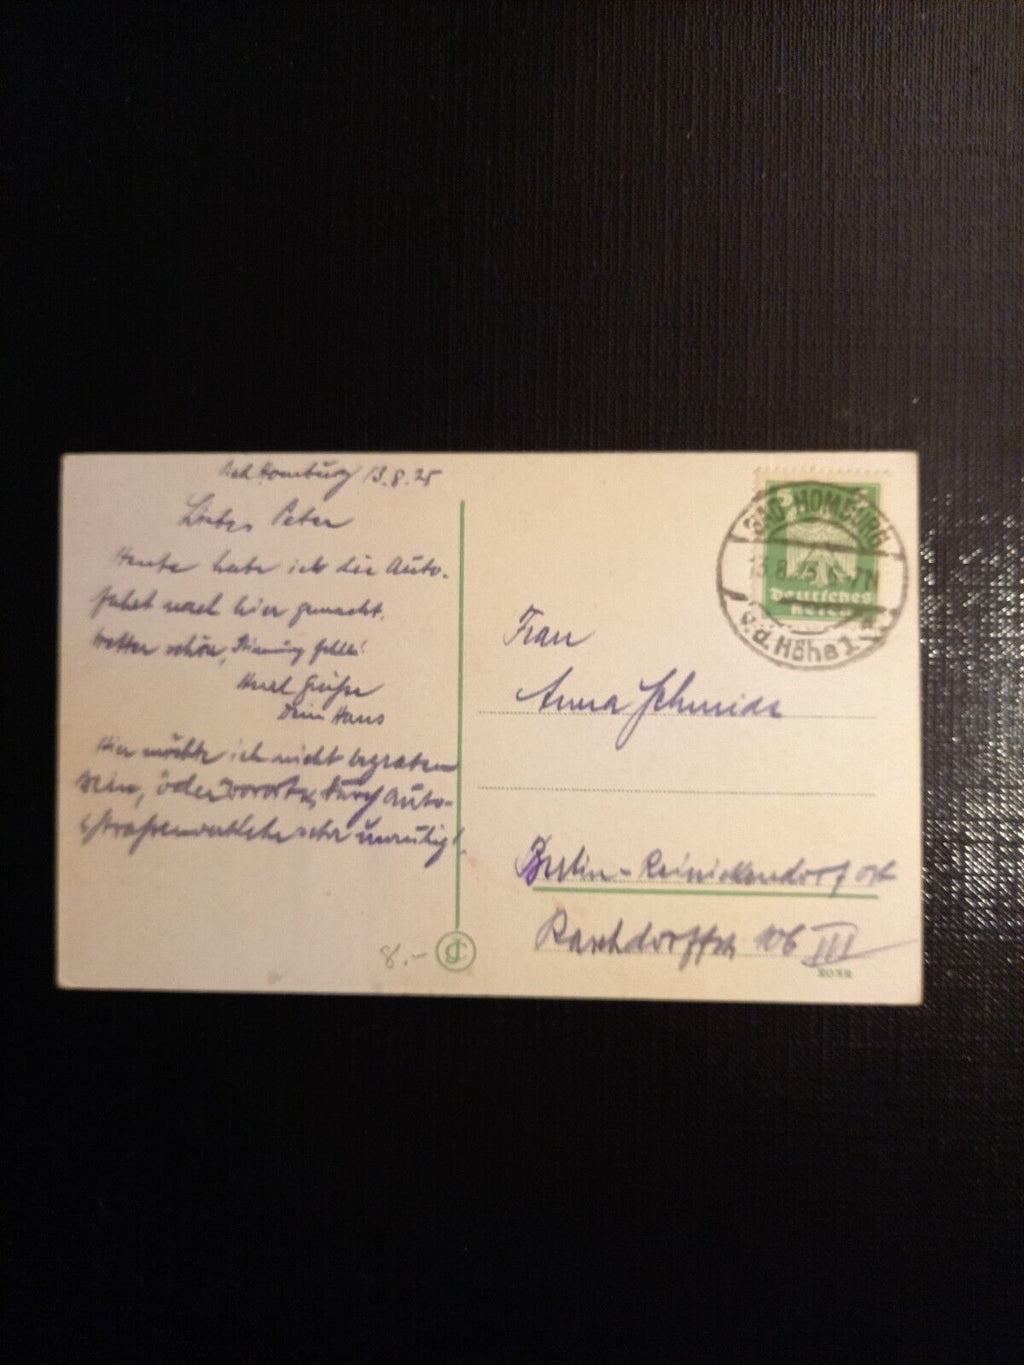 Bad Homburg 13.8.25
Liebes Peter
Heute habe ich die Auto-
fahrt nach hier gemacht.
Wetter schön, Stimmung fehlt!
Grüße
Dein Hans
Hier möchte ich nicht begraben
sein, öder Vorort, durch Auto-
straßenverkehr sehr unruhig!
8.-
BAD HOMBURG
13.8.25 7N
v.d. Höhe 1
5 5
Deutsches
Reich
Frau
Anna Schmidt
Berlin-Reinickendorf Ost
Raschdorffstr 106 III